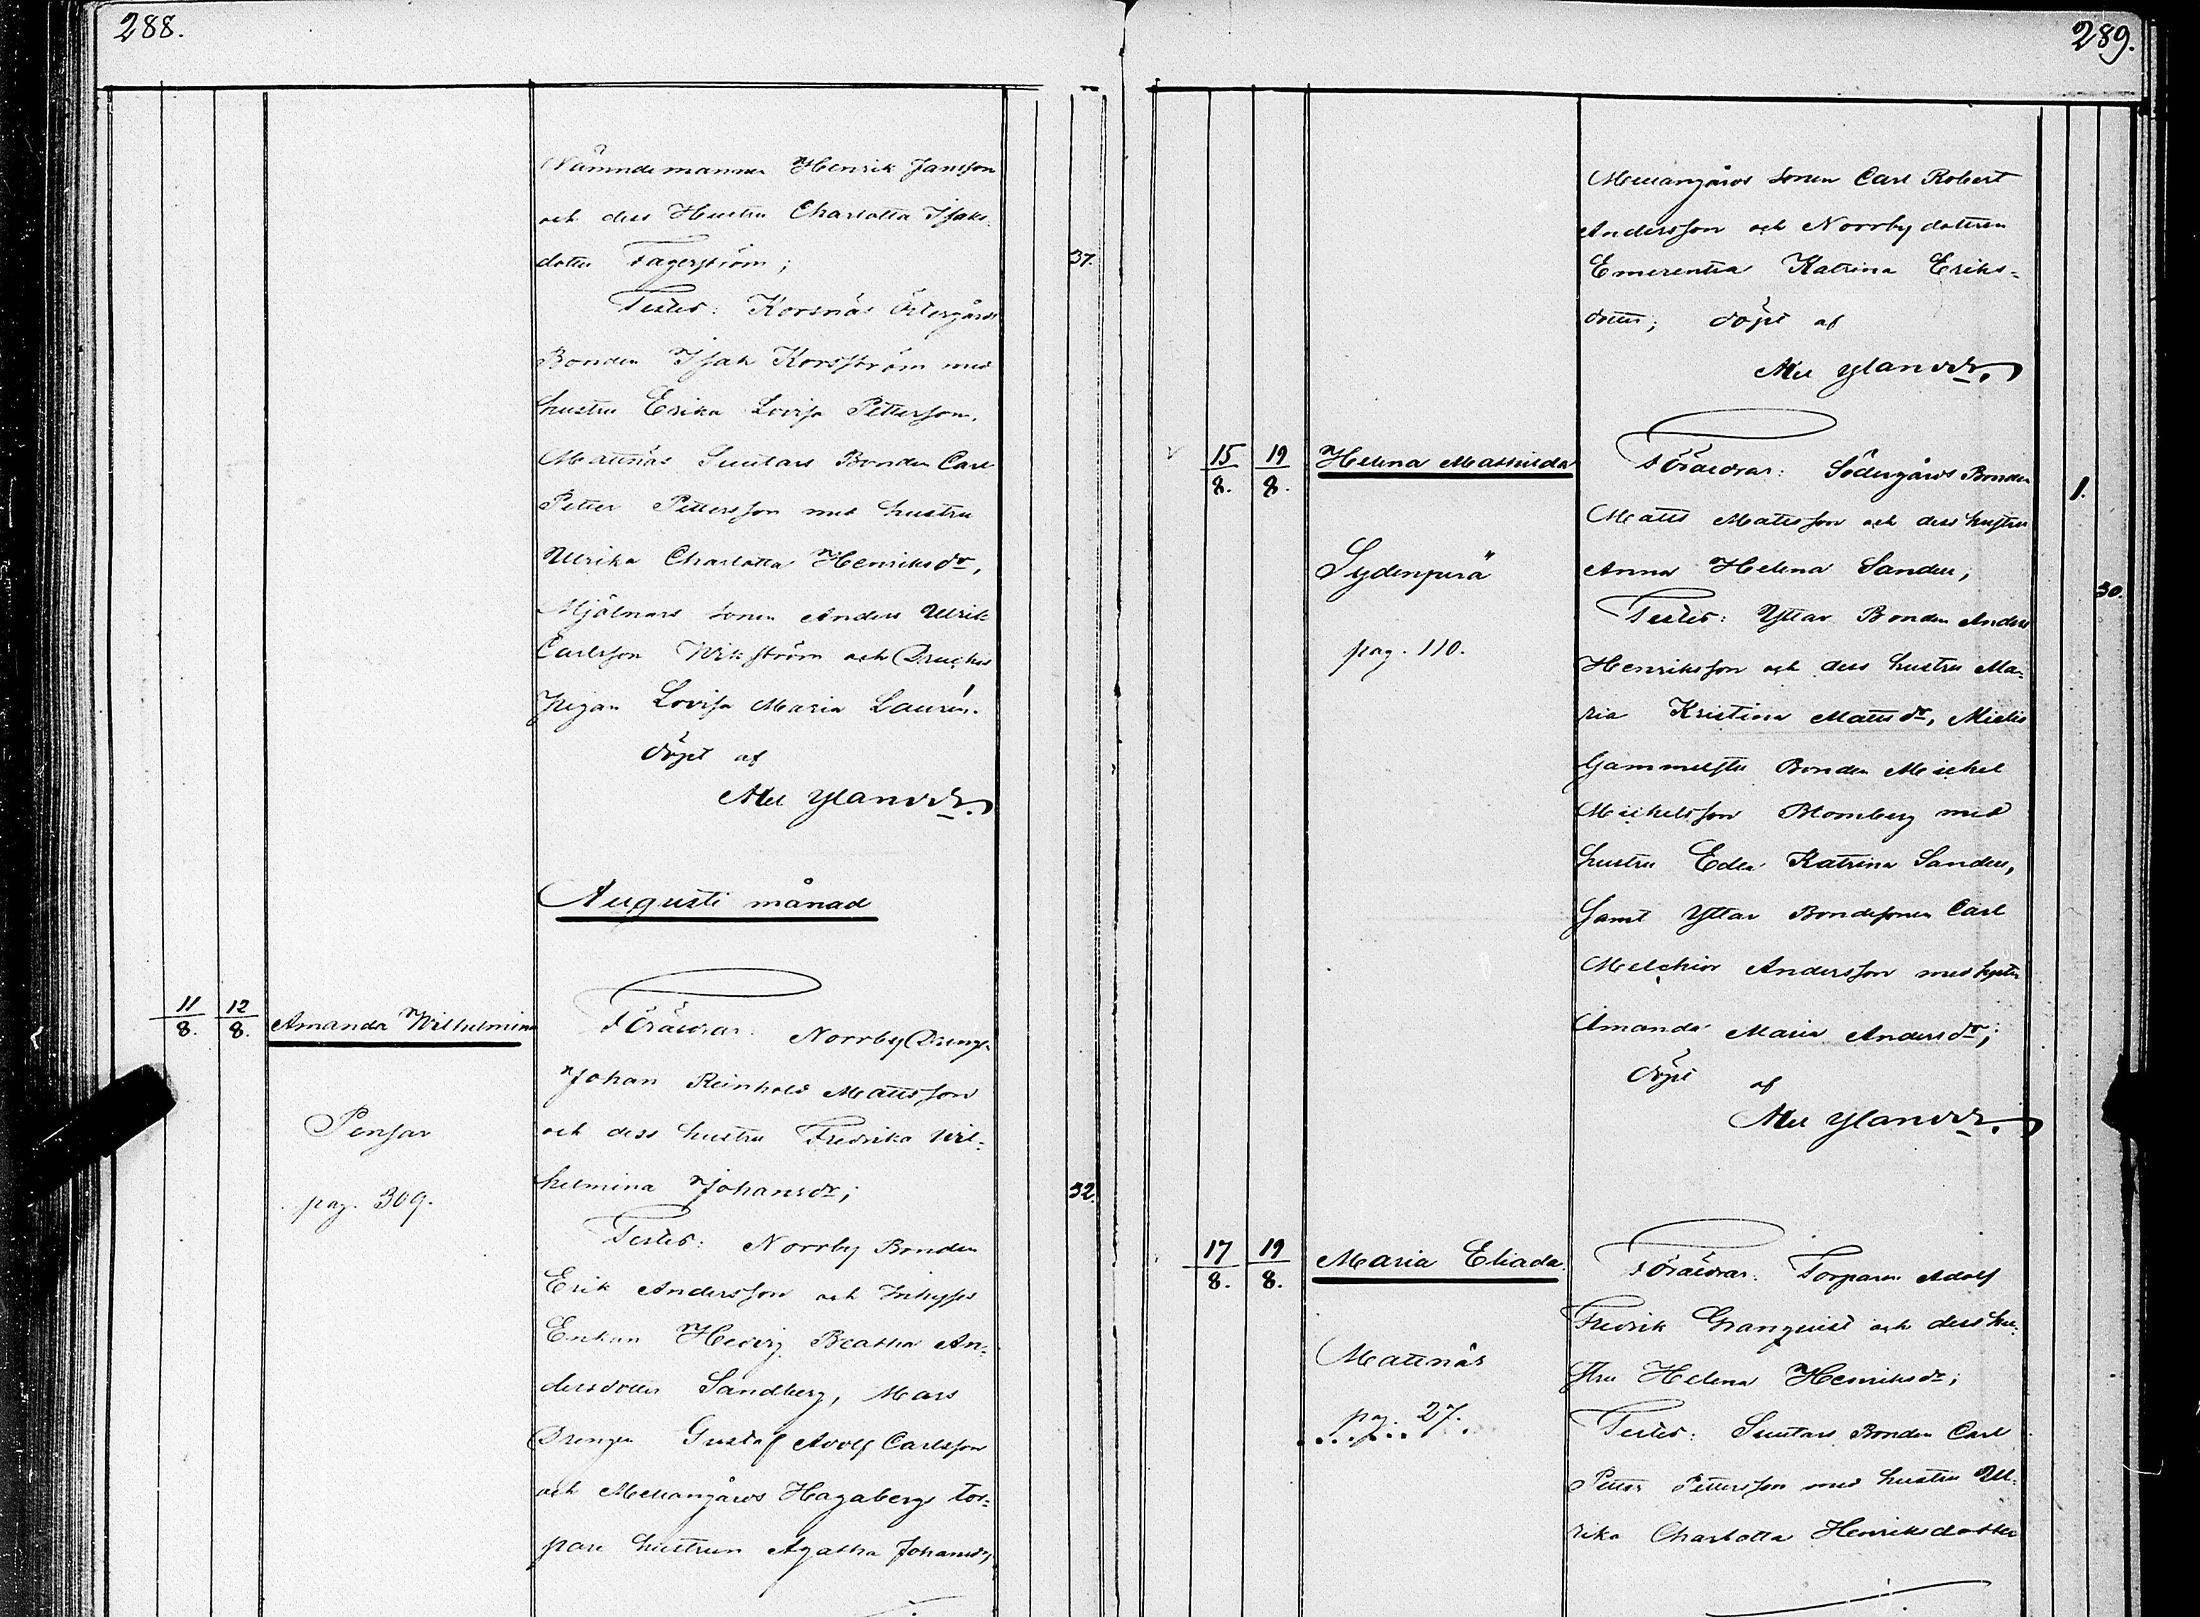 288.
Nämndemannen Henrik Jansson
och dess Hustru Charlotta Isaks-
dotter Fagerström;
37.
Testes: Korsnäs Östergårds
Bonden Isak Korsström med
hustru Erika Lovisa Pettersson,
Mattnäs Simtars Bonden Carl
Petter Pettersson med hustru
Ulrika Charlotta Henriksdr,
Mjölnars sonen Anders Ulrik
Carlsson Wikström och
pigan Lovisa Maria Laurén.
döpt af
Axel Ylander.
Augusti månad
11/8. 12/8. Amanda Wilhelmina
Föräldrar: Norrby Dreng.
Johan Reinhold Mattsson
och dess hustru Fredrika Wil-
helmina Johansdr;
32.
Pensar
pag. 309.
Testes: Norrby Bonden
Erik Andersson och Inhyses
Enkan Hedvig Beatha An-
dersdotter Sandberg, Mars
Drengen Gustaf Adolf Carlsson
och Mellangårds Hagabergs tor-
pare hustrun Agatha Johansdr,
289.
Mellangårds sonen Carl Robert
Andersson och Norrby dottren
Emerentia Katrina Eriks-
dotter; döpt af
Axel Ylander.
15/8. 19/8. Helena Mathilda
Föräldrar: Södergårds Bonden
1.
Matts Mattsson och dess hustru
Anna Helena Sander;
30.
Sydenperä
pag. 110.
Testes: Yttar Bonden Anders
Henriksson och dess hustru Ma-
ria Kristina Mattsdr, Mielis
Bonden Mickel
Mickelsson Blomberg med
hustru Edla Katrina Sander,
samt Yttar Bondesonen Carl
Melchior Andersson med syster
Amanda Maria Andersdr;
döpt af
Axel Ylander.
17/8. 19/8. Maria Eliada.
Föräldrar: Torparen Adolf
Fredrik Granqvist och dess hu-
stru Helena Henriksdr;
Mattnäs
pag. 27.
Testes: Simtars Bonden Carl
Petter Pettersson med hustru Ul-
rika Charlotta Henriksdotter